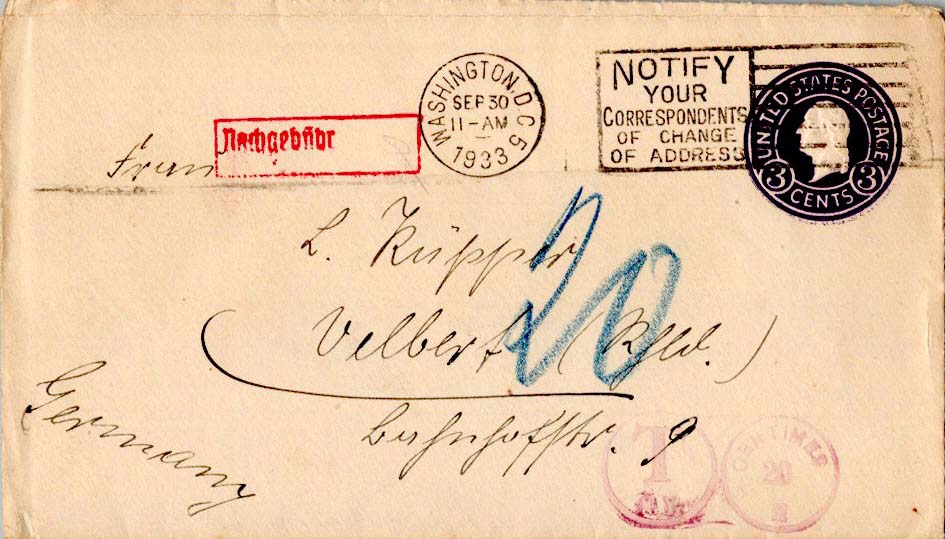 WASHINGTON, D.C. 5
SEP 30
11-AM
1933
NOTIFY
YOUR
CORRESPONDENTS
OF CHANGE
OF ADDRESS
UNITED STATES POSTAGE
3 CENTS 3
Nachgebühr
Frau
L. Küpper
Velbert (Rhld.)
20
Bahnhofstr. 9
Germany
T
N.Y.
CENTIMES
20